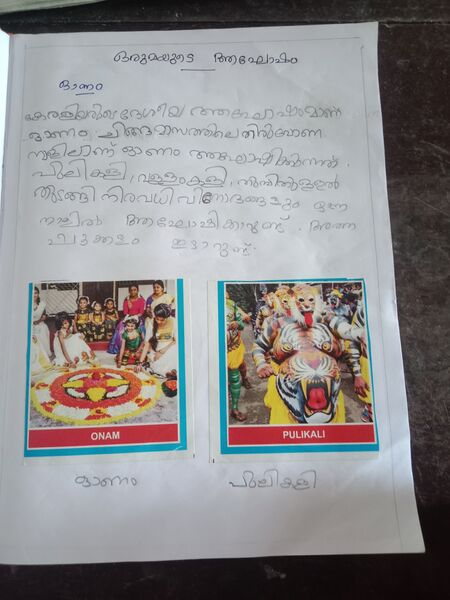 ഒരുമയുടെ ആഘോഷം
ഓണം
കേരളീയരുടെ ദേശീയ ആഘോഷമാണ്
ഓണം. ചിങ്ങമാസത്തിലെ തിരുവോണ
നാളിലാണ് ഓണം ആഘോഷിക്കുന്നത്.
പുലികളി, വള്ളംകളി, തുമ്പിതുള്ളൽ
തുടങ്ങി നിരവധി വിനോദങ്ങളും ഈ
നാളിൽ ആഘോഷിക്കാറുണ്ട്. അത്ത
പൂക്കളം ഇടാറുണ്ട്.
ONAM
PULIKALI
ഓണം
പുലികളി